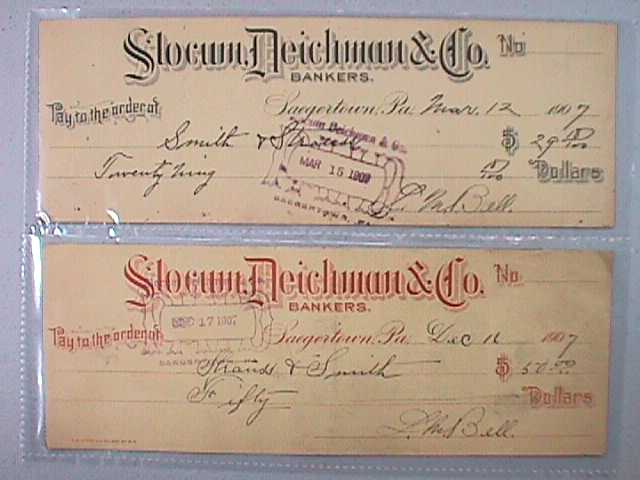 Slocum, Deichman & Co. No
BANKERS.
Pay to the order of
Saegertown, Pa. Mar. 12 1907
Smith & $ 29 00/100
Twenty nine 00/100 Dollars
Slocum Deichman & Co.
MAR 15 1907
SAEGERTOWN, PA.
L. M. Bell.
Slocum, Deichman & Co. No
BANKERS.
DEC 17 1907
Pay to the order of
Saegertown, Pa. Dec 1907
& Smith $ 50.00
Fifty Dollars
L. M. Bell.